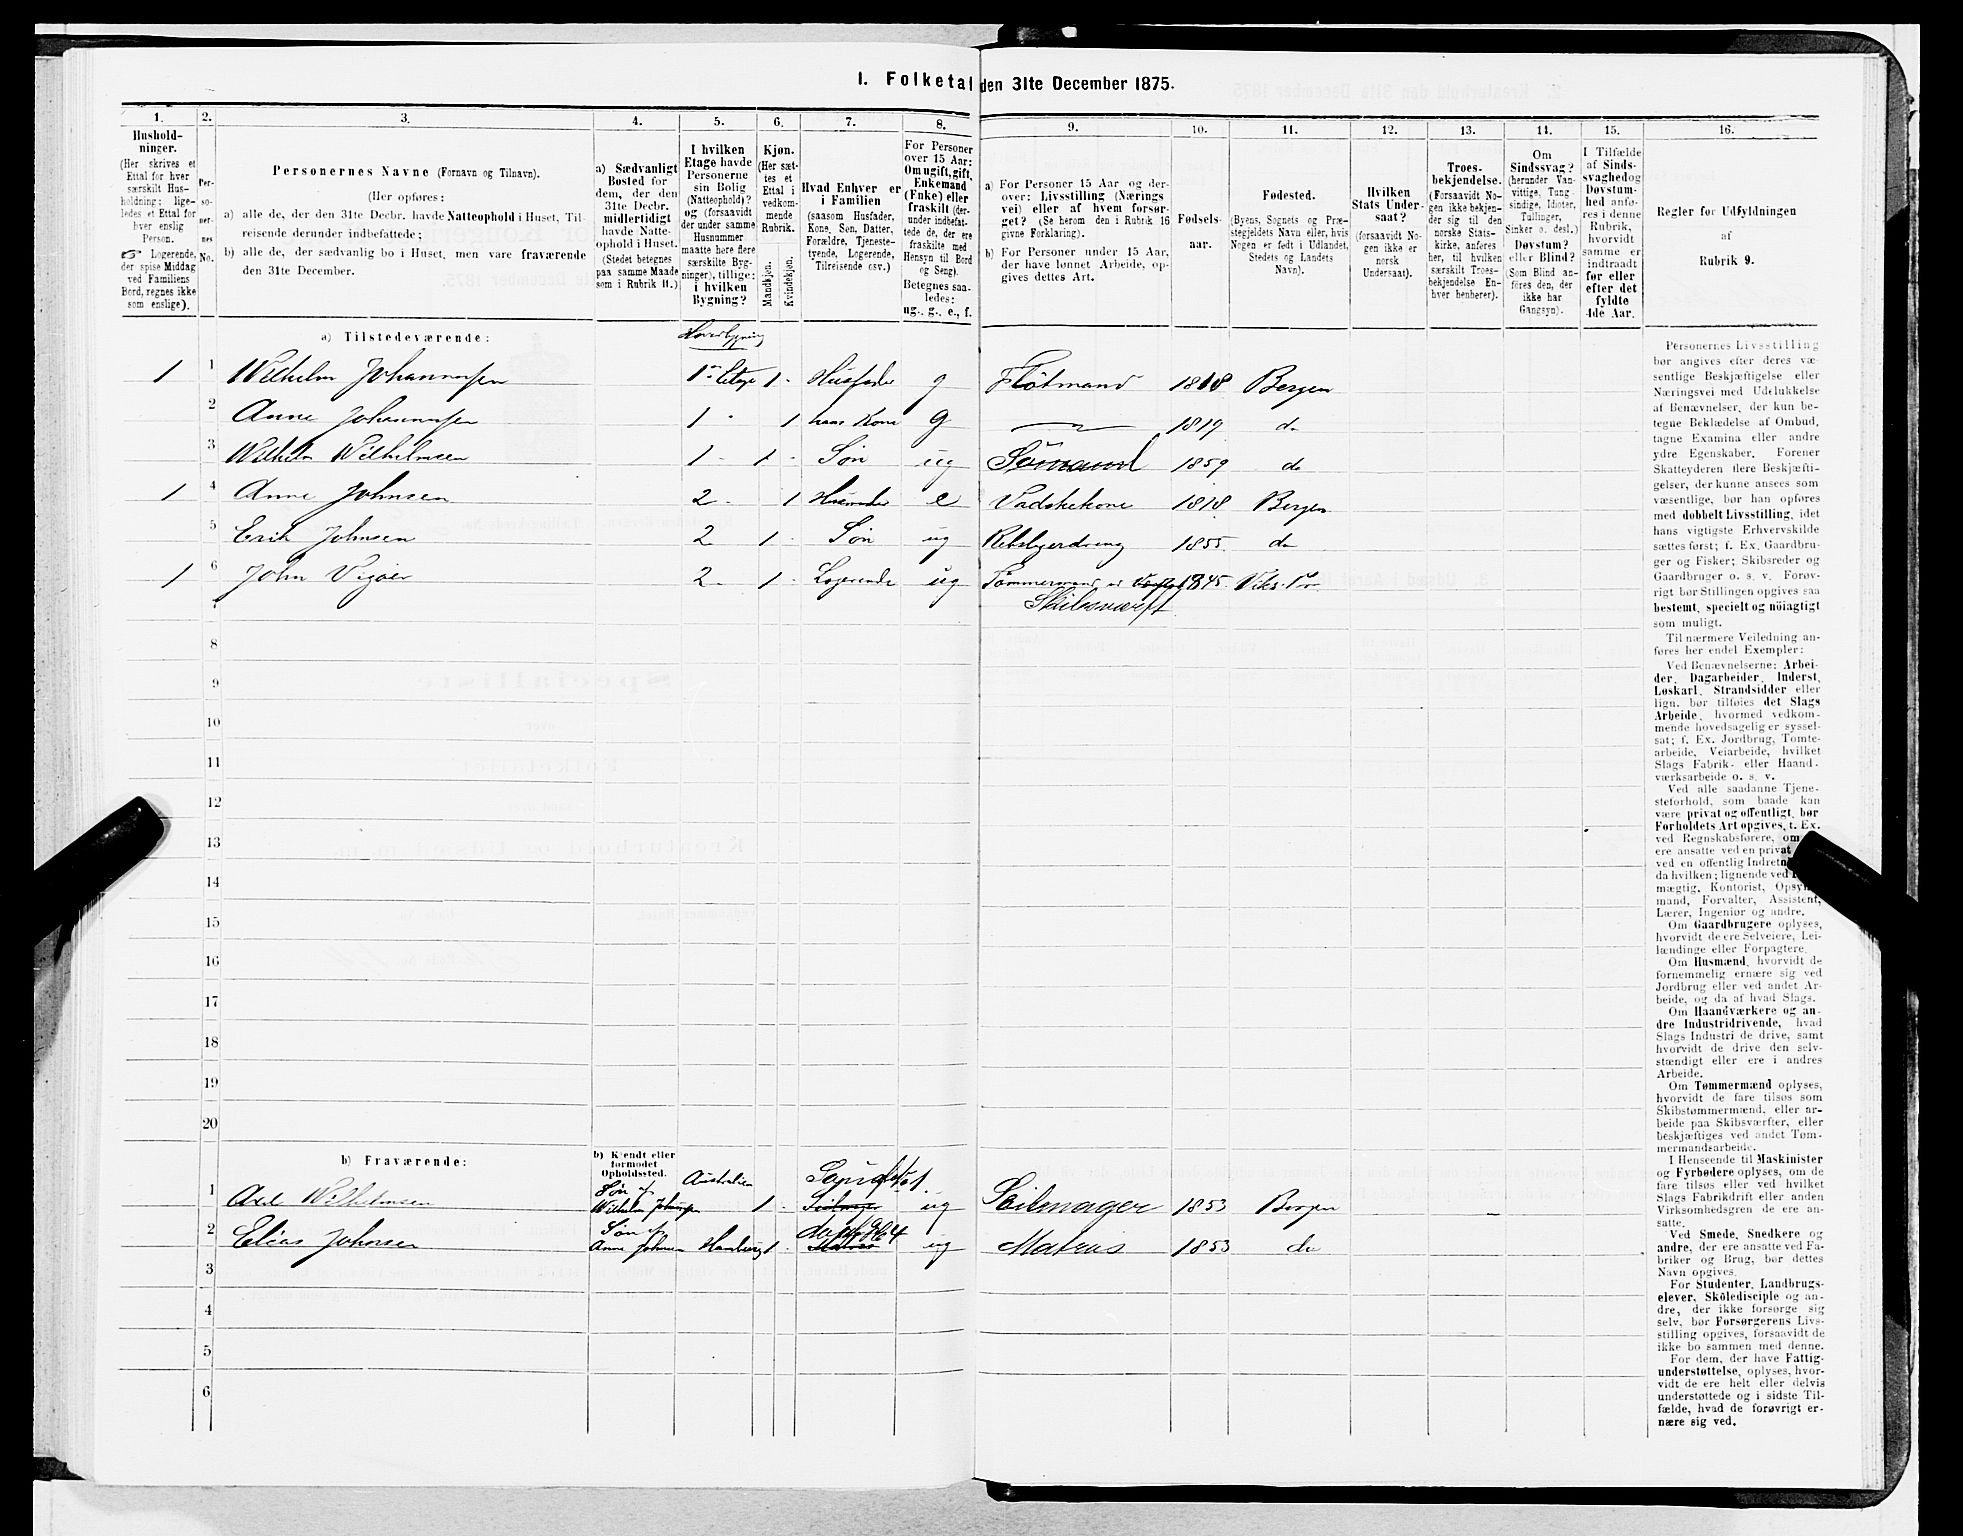 1. Folketal den 31te December 1875.
1. 2. 3. 4. 5. 6. 7. 8. 9. 10. 11. 12. 13. 14. 15. 16.
Hushold-
ninger.
(Her skrives et
Ettal for hver
særskilt Hus-
holdning; lige-
ledes et Ettal for
hver enslig
Person.
☞ Logerende,
der spise Middag
ved Familiens
Bord, regnes ikke
som enslige).
Per-
so-
ner-
nes
No.
Personernes Navne (Fornavn og Tilnavn).
(Her opføres:
a) alle de, der den 31te Decbr. havde Natteophold i Huset, Til-
reisende derunder indbefattede;
b) alle de, der sædvanlig bo i Huset, men vare fraværende
den 31te December.
a) Sædvanligt
Bosted for
dem, der den
31te Decbr.
midlertidigt
havde Natte-
ophold i Huset.
(Stedet betegnes
paa samme Maade
som i Rubrik 11.)
I hvilken
Etage havde
Personerne
sin Bolig
(Natteophold)?
og (forsaavidt
der under samme
Husnummer
maatte høre flere
særskilte Byg-
ninger), tillige:
i hvilken
Bygning?
Kjøn.
(Her sæt-
tes et
Ettal i
vedkom-
mende
Rubrik.
Mandkjøn.
Kvindekjøn.
Hvad Enhver er
i Familien
(saasom Husfader,
Kone, Søn, Datter,
Forældre, Tjeneste-
tyende, Logerende,
Tilreisende osv.)
For Personer
over 15 Aar:
Om ugift, gift,
Enkemand
(Enke) eller
fraskilt (der-
under indbefat-
tede de, der ere
fraskilte med
Hensyn til Bord
og Seng).
Betegnes saa-
ledes:
ug., g., e., f.
a) For Personer 15 Aar og der-
over: Livsstilling (Nærings
vei) eller af hvem forsør-
get? (Se herom den i Rubrik 16
givne Forklaring).
b) For Personer under 15 Aar,
der have lønnet Arbeide, op-
gives dettes Art.
Fødsels-
aar.
Fødested.
(Byens, Sognets og Præ-
stegjeldets Navn eller, hvis
Nogen er født i Udlandet,
Stedets og Landets
Navn).
Hvilken
Stats Under-
saat?
(forsaavidt No-
gen ikke er
norsk
Undersaat).
Troes-
bekjendelse.
(Forsaavidt No-
gen ikke bekjen-
der sig til den
norske Stats-
kirke, anføres
her, til hvilken
særskilt Troes-
bekjendelse En-
hver henhører).
Om
Sindssvag?
(herunder Van-
vittige, Tung-
sindige, Idioter,
Tullinger,
Sinker o. desl.)
Døvstum?
eller Blind?
(Som Blind an-
føres den, der
ikke har
Gangsyn).
I Tilfælde
af Sinds-
svaghed og
Døvstum-
hed anfø-
res i denne
Rubrik,
hvorvidt
samme er
indtraadt
før eller
efter det
fyldte
4de Aar.
Regler før Udfyldningen
af
Rubrik 9.
a) Tilstedeværende: Hovedbygning
1 1 Wilhelm Johannessen 1ste Etage 1 Husfader g Fløtmand 1818 Bergen
2 Anne Johannessen 1 " 1 hans Kone g 1819 do
3 Wilhelm Wilhelmsen 1 - 1 Søn ug Sømand 1859 do
1 4 Anne Johnsen 2 - 1 Husmoder e Vadskekone 1818 Bergen
5 Erik Johnsen 2 1 Søn ug Rebslagerdreng 1855 do
1 6 John Vigøer 2 - 1 Logerende ug Tømmermand ved 1845 Viks Pr
7 Skibsværft
8
9
10
11
12
13
14
15
16
17
18
19
20
b) Fraværende:
b) Kjendt eller
formodet
Opholdssted.
Søn af Australien
1 Axel Wilhelmsen Wilhelm Johannsen 1 ug Seilmager 1853 Bergen
Søn af
2 Elias Johnsen Anne Johnsen Hamburg 1 Matros ug Matros 1853 do
3
4
5
6
Personernes Livsstilling
bør angives efter deres væ-
sentlige Beskjæftigelse eller
Næringsvei med Udelukkelse
af Benævnelser, der kun be-
tegne Beklædelse af Ombud,
tagne Examina eller andre
ydre Egenskaber. Forener
Skatteyderen flere Beskjæfti-
gelser, der kunne ansees som
væsentlige, bør han opføres
med dobbelt Livsstilling, idet
hans vigtigste Erhvervskilde
sættes først; f. Ex. Gaardbru-
ger og Fisker; Skibsreder og
Gaardbruger o. s. v. Forøv-
rigt bør Stillingen opgives saa
bestemt, specielt og nöiagtigt
som muligt.
Til nærmere Veiledning an-
føres her endel Exempler:
Ved Benævnelserne: Arbei-
der, Dagarbeider, Inderst,
Løskarl, Strandsidder eller
lign. bør tilføies det Slags
Arbeide, hvormed vedkom-
mende hovedsagelig er syssel-
sat; f. Ex. Jordbrug, Tomte-
arbeide, Veiarbeide, hvilket
Slags Fabrik- eller Haand-
værksarbeide o. s. v.
Ved alle saadanne Tjene-
steforhold, som baade kan
være privat og offentligt, bør
Forholdets Art opgives, t. Ex.
ved Regnskabsførere, om
ere ansatte ved en privat
ved en offentlig Indretn
da hvilken; lignende ved
mægtig, Kontorist, Opsyn
mand, Forvalter, Assistent,
Lærer, Ingeniør og andre.
Om Gaardbrugere oplyses,
hvorvidt de ere Selveiere, Lei-
lændinge eller Forpagtere.
Om Husmænd, hvorvidt de
fornemmelig ernære sig ved
Jordbrug eller ved andet Ar-
beide, og da af hvad Slags.
Om Haandværkere og an-
dre Industridrivende, hvad
Slags Industri de drive, samt
hvorvidt de drive den selv-
stændigt eller ere i andres
Arbeide.
Om Tømmermænd oplyses,
hvorvidt de fare tilsøs som
Skibstømmermænd, eller ar-
beide paa Skibsværfter, eller
beskjæftiges ved andet Tøm-
mermandsarbeide.
I Henseende til Maskinister
og Fyrbødere oplyses, om de
fare tilsøs eller ved hvilket
Slags Fabrikdrift eller anden
Virksomhedsgren de ere an-
satte.
Ved Smede, Snedkere og
andre, der ere ansatte ved Fa-
briker og Brug, bør dettes
Navn opgives.
For Studenter, Landbrugs-
elever, Skoledisciple og an-
dre, der ikke forsørge sig
selv, bør Forsørgerens Livs-
stilling opgives, forsaavidt de
ikke bo sammen med denne.
For dem, der have Fattig-
understøttelse, oplyses, hvor-
vidt de ere helt eller delvis
understøttede og i sidste Til-
fælde, hvad de forøvrigt er-
nære sig ved.